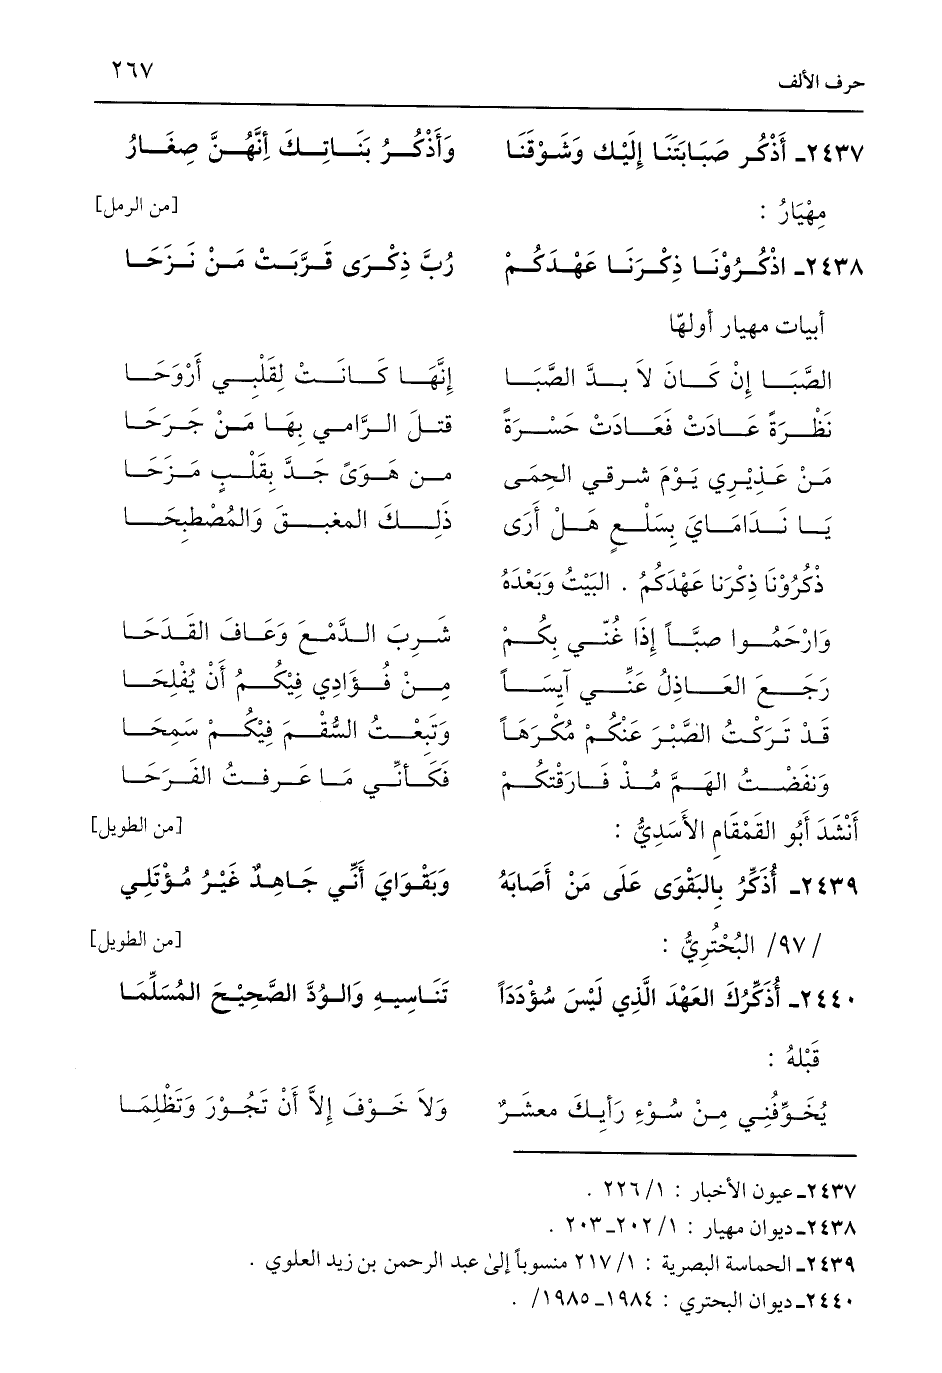 حرف الألف ٢٦٧
٢٤٣٧ـ أَذْكُر صَبَابَتَنَا إِلَيْك وَشَوْقَنَا وَأَذْكُرُ بَنَاتِكَ أَنَّهُنَّ صِغَارُ
مِهْيَارُ : [من الرمل]
٢٤٣٨ـ اذْكُرُوْنَا ذِكْرَنَا عَهْدَكُمْ رُبَّ ذِكْرَى قَرَّبَتْ مَنْ نَزَحَا
أبيات مهيار أولهّا
الصَّبَا إِنْ كَانَ لاَ بدَّ الصَّبَا إِنَّهَا كَانَتْ لِقَلْبِي أَرْوَحَا
نَظْرَةً عَادَتْ فَعَادَتْ حَسْرَةً قتلَ الرَّامِي بِهَا مَنْ جَرَحَا
مَنْ عَذِيْرِي يَوْمَ شرقي الحِمَى من هَوىً جَدَّ بِقَلْبٍ مَزَحَا
يَا نَدَامَايَ بِسَلْعٍ هَلْ أَرَى ذَلِكَ المغبقَ وَالمُصْطبِحَا
ذْكُرُوْنَا ذِكْرَنا عَهْدَكُمُ . البَيْتُ وَبَعْدَهُ
وَارْحَمُوا صبَّاً إِذَا غُنِّي بِكُمْ شَربَ الدَّمْعَ وَعَافَ القَدَحَا
رَجَعَ العَاذِلُ عَنِّي آيسَاً مِنْ فُؤَادِي فِيْكُمُ أَنْ يُفْلِحَا
قَدْ تَرَكْتُ الصَّبْرَ عَنْكُمْ مُكْرَهَاً وَتَبِعْتُ السُّقْمَ فِيْكُمْ سَمِحَا
وَنفَضْتُ الهَمَّ مُذْ فَارَقتكُمْ فَكَأَنِّي مَا عَرفتُ الفَرَحَا
أَنْشَدَ أَبُو القَمْقَامِ الأَسَدِيُّ : [من الطويل]
٢٤٣٩ـ أُذَكِّرُ بِالبَقْوَى عَلَى مَنْ أَصَابَهُ وَبَقْوَايَ أَنِّي جَاهِدٌ غَيْرُ مُؤْتَلِي
/٩٧/ البُحْتُرِيُّ : [من الطويل]
٢٤٤٠ـ أُذَكِّرُكَ العَهْدَ الَّذِي لَيْسَ سُؤْدَدَاً تَنَاسِيهِ وَالوُدَّ الصَّحِيْحَ المُسَلَّمَا
قَبْلهُ :
يُخَوِّفُنِي مِنْ سُوْءِ رَأيِكَ معشَرٌ وَلاَ خَوْفَ إِلاَّ أَنْ تَجُوْرَ وَتَظْلِمَا
٢٤٣٧ـ عيون الأخبار : ١/ ٢٢٦ .
٢٤٣٨ـ ديوان مهيار : ١/ ٢٠٢ـ ٢٠٣ .
٢٤٣٩ـ الحماسة البصرية : ١/ ٢١٧ منسوباً إلى عبد الرحمن بن زيد العلوي .
٢٤٤٠ـ ديوان البحتري : ١٩٨٤ـ ١٩٨٥/ .